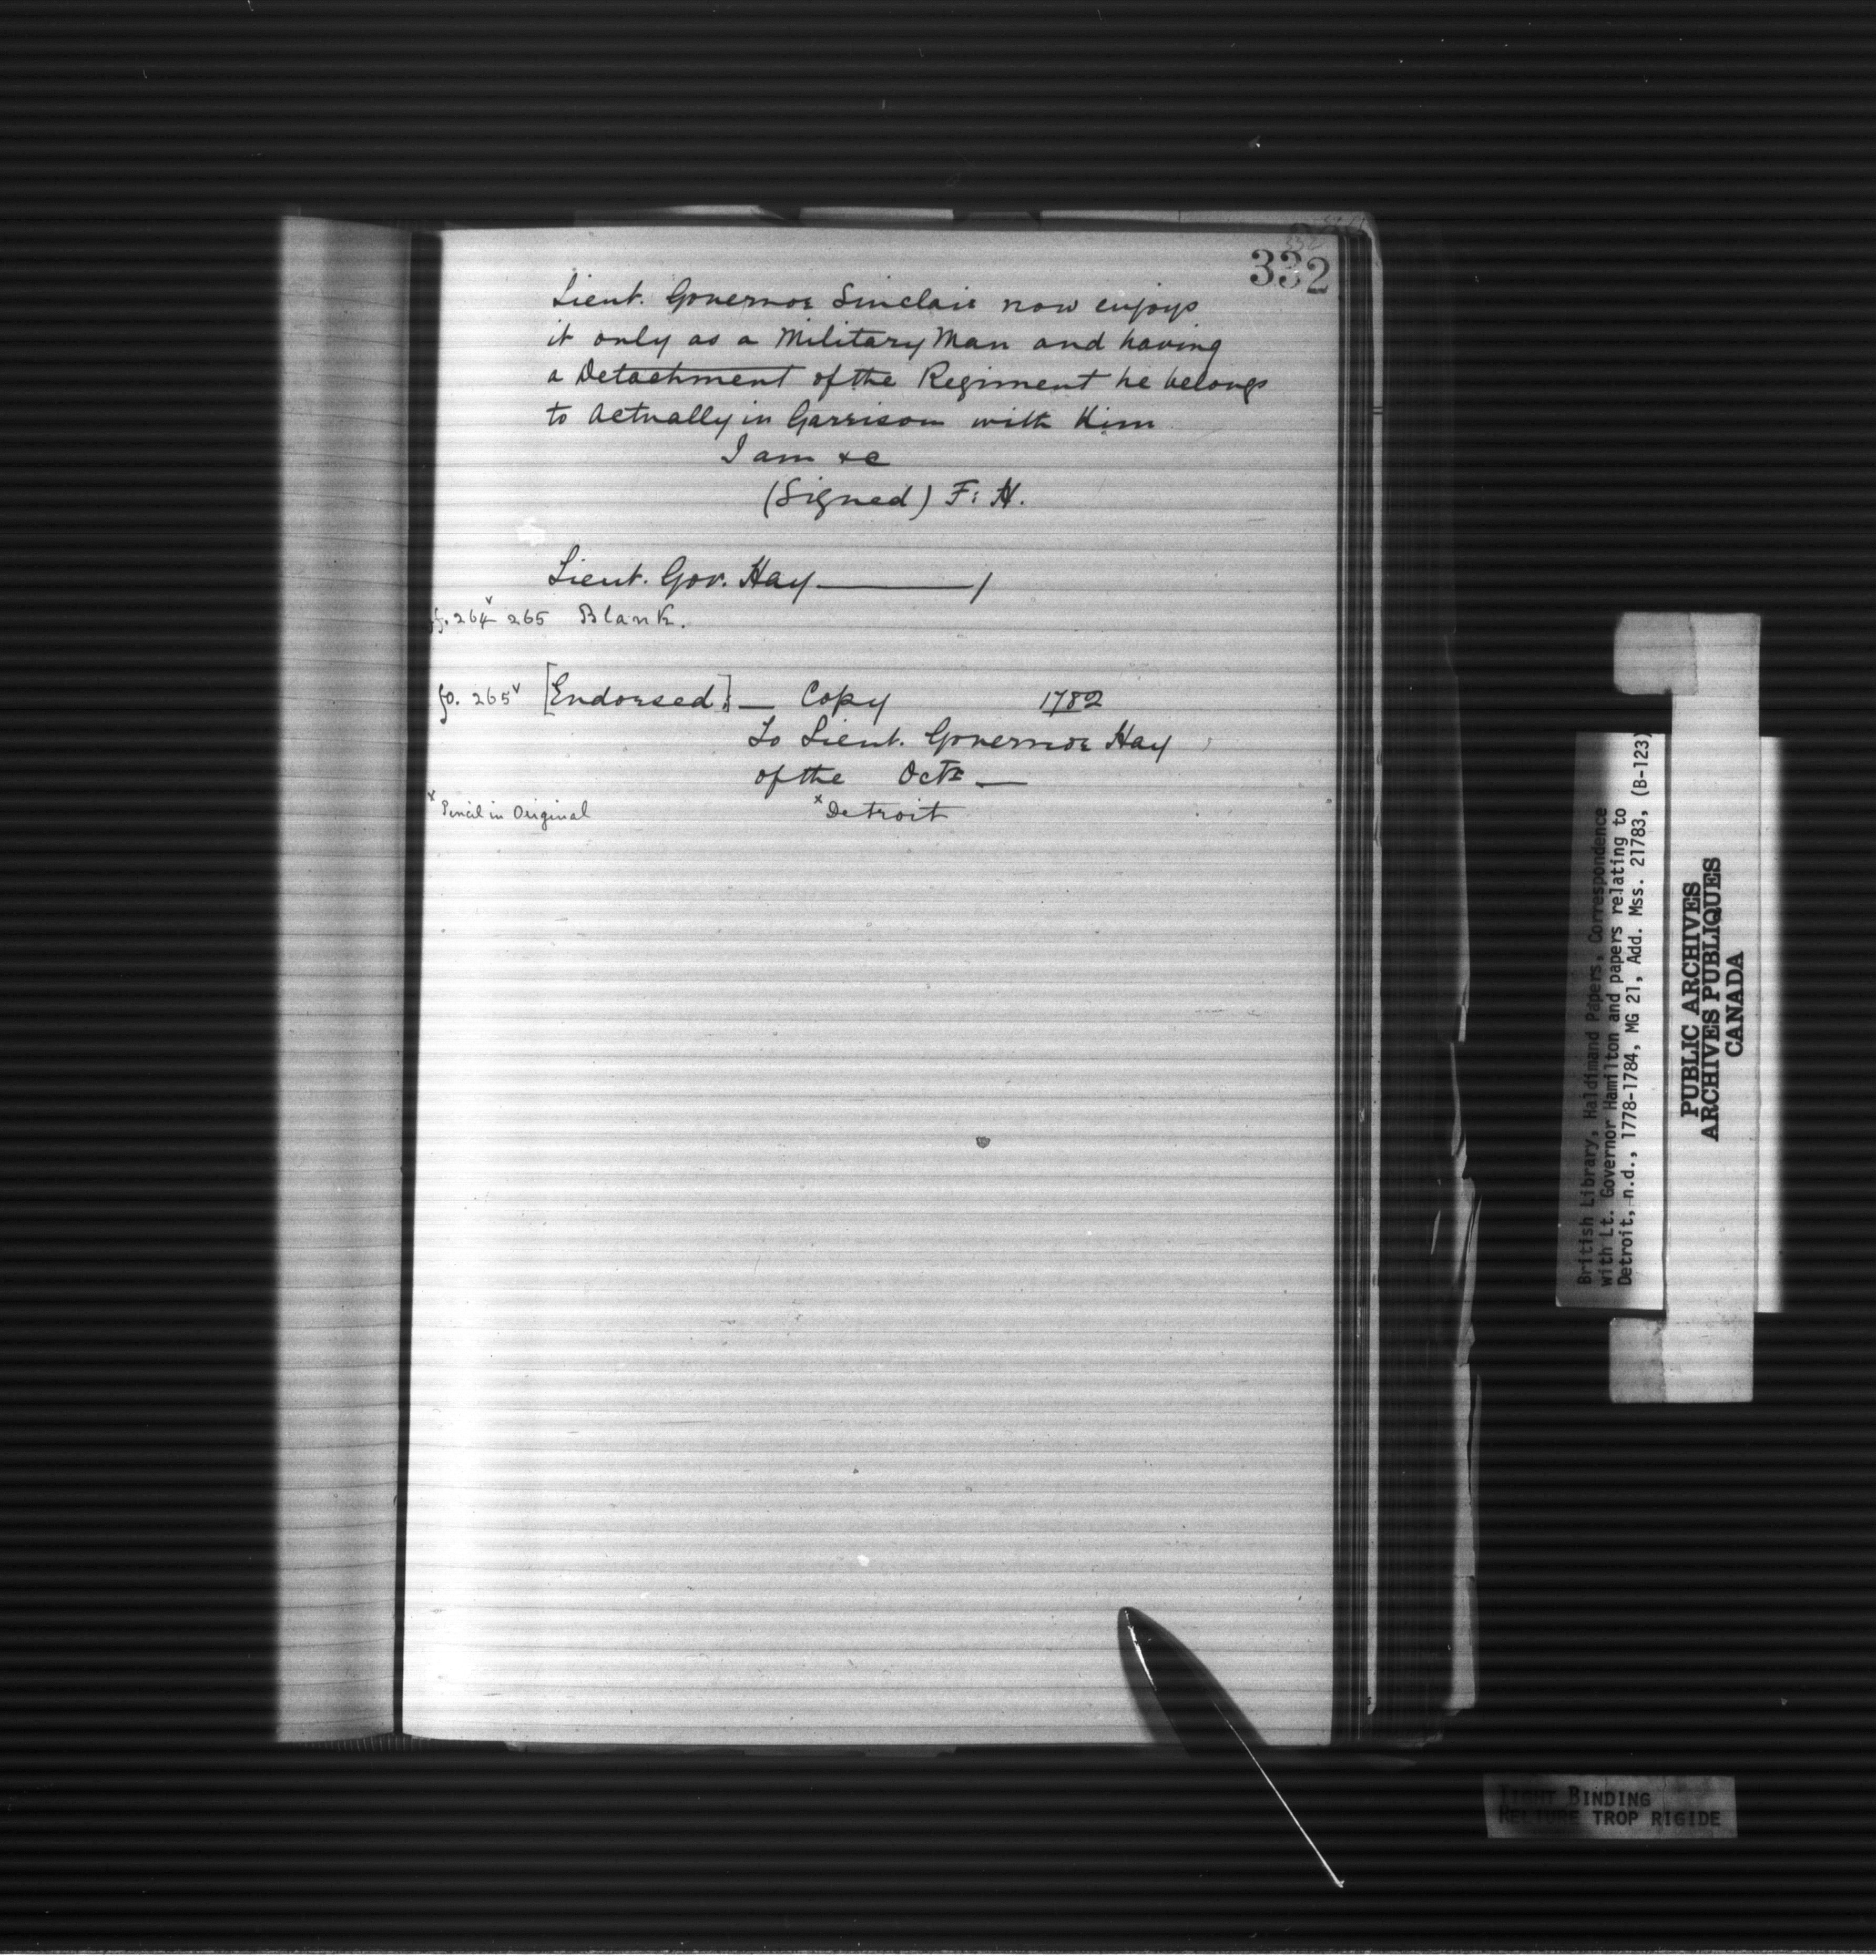 332
Lieut. Governor Sinclair now enjoys
it only as a Military Man and having
a Detachment of the Regiment he belongs
to Actually in Garrison with Him
I am &c
(Signed) F: H.
Lieut. Gov. Hay
ff. 264v 265 Blank.
fo. 265v [Endorsed]:— Copy 1782
To Lieut. Governor Hay
of the Octr —
x Pencil in Original x Detroit
British Library, Haldimand Papers, Correspondence
with Lt. Governor Hamilton and papers relating to
Detroit, n.d., 1778-1784, MG 21, Add. Mss. 21783, (B-123)
PUBLIC ARCHIVES
ARCHIVES PUBLIQUES
CANADA
TIGHT BINDING
RELIURE TROP RIGIDE